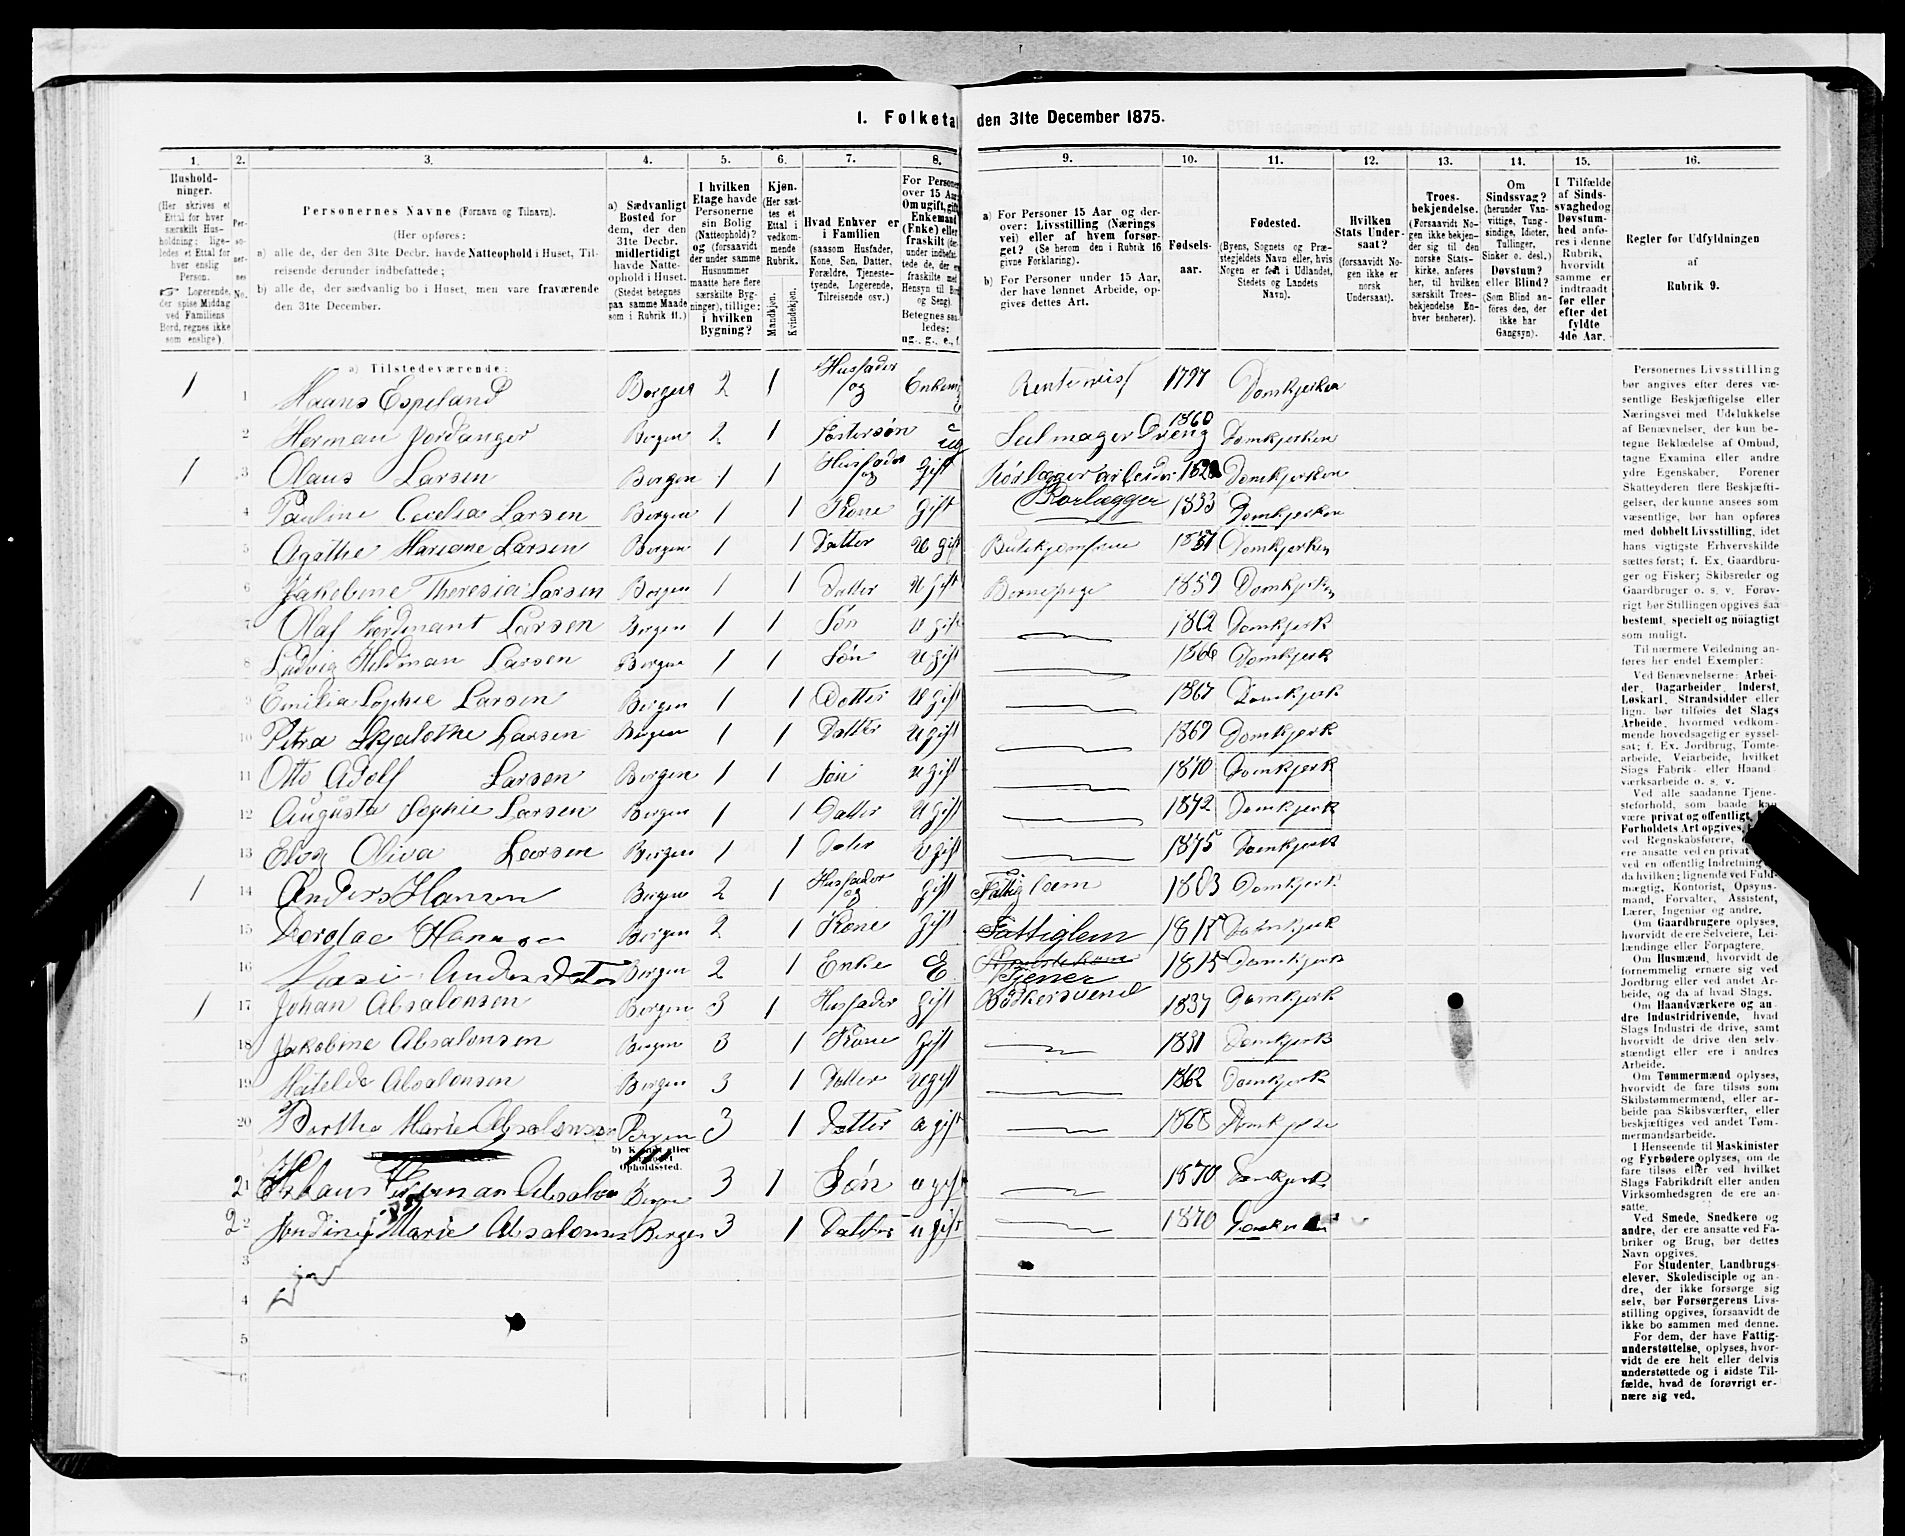 1. Folketal den 31te December 1875.
1. 2. 3. 4. 5. 6. 7. 8. 9. 10. 11. 12. 13. 14. 15. 16.
Husholdninger. (Her skrives et Ettal for hver særskilt Husholdning; ligeledes et Ettal for hver enslig Person. Logerende, der spise Middag ved Familiens Bord, regnes ikke som enslige).
Personernes No.
Personernes Navne (Fornavn og Tilnavn).
(Her opføres:
a) alle de, der den 31te Decbr. havde Natteophold i Huset, Tilreisende derunder indbefattede;
b) alle de, der sædvanlig bo i Huset, men vare fraværende den 31te December.
a) Sædvanligt Bosted for dem, der den 31te Decbr. midlertidigt havde Natteophold i Huset. (Stedet betegnes paa samme Maade som i Rubrik 11.)
I hvilken Etage havde Personerne sin Bolig (Natteophold)? og (forsaavidt der under samme Husnummer maatte høre flere særskilte Bygninger), tillige: i hvilken Bygning?
Kjøn. (Her sættes et Ettal i vedkommende Rubrik.
Mandkjøn. Kvindekjøn.
Hvad Enhver er i Familien (saasom Husfader, Kone, Søn, Datter, Forældre, Tjenestetyende, Logerende, Tilreisende osv.)
For Personer over 15 Aar: Om ugift, gift, Enkemand (Enke) eller fraskilt
Betegnes saaledes: ug., g., e., f.
a) For Personer 15 Aar og derover: Livsstilling (Næringsvei) eller af hvem forsørget? (Se herom den i Rubrik 16 givne Forklaring).
b) For Personer under 15 Aar, der have lønnet Arbeide, opgives dettes Art.
Fødselsaar.
Fødested. (Byens, Sognets og Præstegjeldets Navn eller, hvis Nogen er født i Udlandet, Stedets og Landets Navn).
Hvilken Stats Undersaat? (forsaavidt Nogen ikke er norsk Undersaat).
Troesbekjendelse. (Forsaavidt Nogen ikke bekjender sig til den norske Statskirke, anføres her, til hvilken særskilt Troesbekjendelse Enhver henhører).
Om Sindssvag? (herunder Vanvittige, Tungsindige, Idioter, Tullinger, Sinker o. desl.) Døvstum? eller Blind? (Som Blind anføres den, der ikke har Gangsyn).
I Tilfælde af Sindssvaghed og Døvstumhed anføres i denne Rubrik, hvorvidt samme er indtraadt før eller efter det fyldte 4de Aar.
Regler for Udfyldningen af Rubrik 9.
a) Tilstedeværende:
1 1 Haans Espeland Bergen 2 1 Husfader og Enkem Rentenist 1797 Domkjerken
2 Herman Jordanger Bergen 2 1 Søstersøn ug Salmager Dreng 1860 Domkjerken
1 3 Olaus Larsen Bergen 1 1 Husfader og Gift Domkjerken
4 Pauline Larsen Bergen 1 1 Kone Gift Rorlægger 1833 Domkjerken
5 Agathe Mariane Larsen Bergen 1 1 Datter U Gift Domkjerken
6 Jakobine Theresia Larsen Bergen 1 1 Datter U Gift Bernepige 1859 Domkjerken
7 Olaf Larsen Bergen 1 1 Søn U Gift 1862 Domkjerk
8 Ludvig Larsen Bergen 1 1 Søn U Gift 1866 Domkjerk
9 Emilia Sophie Larsen Bergen 1 1 Dotter U Gift 1867 Domkjerk
10 Petra Larsen Bergen 1 1 Datter U Gift 1869 Domkjerk
11 Otto Adolf Larsen Bergen 1 1 Søn U Gift 1870 Domkjerk
12 Augusta Sophie Larsen Bergen 1 1 Datter U Gift 1872 Domkjerk
13 Oliva Larsen Bergen 1 1 Dater U Gift 1875 Domkjerk
1 14 Anders Hansen Bergen 2 1 Husfader og gift Fattig lem 1803 Domkjerk
15 Bergen 2 1 Kone gift Fattiglem Domkjerk
16 Bergen 2 1 Enke E Tjener 1815 Domkjerk
1 17 Johan Absalonsen Bergen 3 1 Husfader gift Bødkersvend 1837 Domkjerk
18 Jakobine Absalonsen Bergen 3 1 Kone Gift 1831 Domkjerk
19 Matelde Absalonsen Bergen 3 1 Datter Ugift 1862 Domkjerk
20 Berthe Marie Absalonsen Bergen 3 1 Datter u gift 1868
b) Kjendt eller Opholdssted.
21 Bergen 3 1 Søn u gift 1870 Domkjerk
22 Marie Absalonsen Bergen 3 1 Datter u gift 1870
3
4
5
6
Personernes Livsstilling bør angives efter deres væsentlige Beskjæftigelse eller Næringsvei med Udelukkelse af Benævnelser, der kun betegne Beklædelse af Ombud, tagne Examina eller andre ydre Egenskaber. Forener Skatteyderen flere Beskjæftigelser, der kunne ansees som væsentlige, bør han opføres med dobbelt Livsstilling, idet hans vigtigste Erhvervskilde sættes først; f. Ex. Gaardbruger og Fisker; Skibsreder og Gaardbruger o. s. v. Forøvrigt bør Stillingen opgives saa bestemt, specielt og nöiagtigt som muligt.
Til nærmere Veiledning anføres her endel Exempler:
Ved Benævnelserne: Arbeider, Dagarbeider, Inderst, Løskarl, Strandsidder eller lign. bør tilføies det Slags Arbeide, hvormed vedkommende hovedsagelig er sysselsat; f. Ex. Jordbrug, Tomtearbeide, Veiarbeide, hvilket Slags Fabrik- eller Haandværksarbeide o. s. v.
Ved alle saadanne Tjenesteforhold, som baade kan være privat og offentligt, Forholdets Art opgives, ved Regnskabsførere, ere ansatte ved en privat ved en offentlig Indretning da hvilken; lignende ved Fuldmægtig, Kontorist, Opsynsmand, Forvalter, Assistent, Lærer, Ingeniør og andre.
Om Gaardbrugere oplyses, hvorvidt de ere Selveiere, Leilændinge eller Forpagtere.
Om Husmænd, hvorvidt de fornemmelig ernære sig ved Jordbrug eller ved andet Arbeide, og da af hvad Slags.
Om Haandværkere og andre Industridrivende, hvad Slags Industri de drive, samt hvorvidt de drive den selvstændigt eller ere i andres Arbeide.
Om Tømmermænd oplyses, hvorvidt de fare tilsøs som Skibstømmermænd, eller arbeide paa Skibsværfter, eller beskjæftiges ved andet Tømmermandsarbeide.
I Henseende til Maskinister og Fyrbødere oplyses, om de fare tilsøs eller ved hvilket Slags Fabrikdrift eller anden Virksomhedsgren de ere ansatte.
Ved Smede, Snedkere og andre, der ere ansatte ved Fabriker og Brug, bør dettes Navn opgives.
For Studenter, Landbrugselever, Skoledisciple og andre, der ikke forsørge sig selv, bør Forsørgerens Livsstilling opgives, forsaavidt de ikke bo sammen med denne.
For dem, der have Fattigunderstøttelse, oplyses, hvorvidt de ere helt eller delvis understøttede og i sidste Tilfælde, hvad de forøvrigt ernære sig ved.